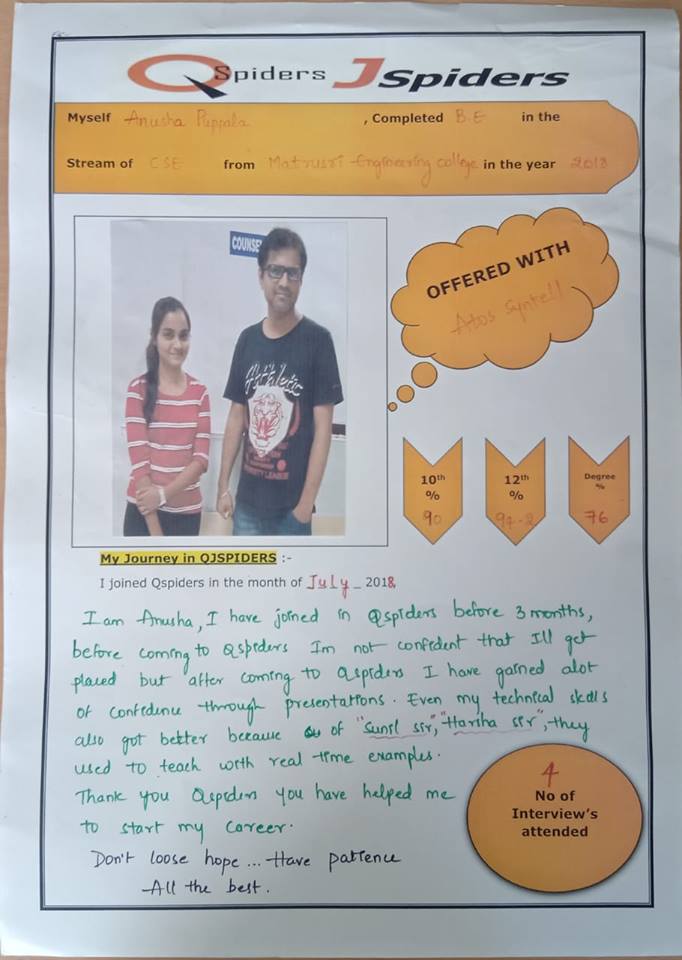 QSpiders JSpiders
Myself Anusha Puppala , Completed B.E in the
Stream of CSE from Matrusri Engineering college in the year 2018
COUNSE
OFFERED WITH
Atos Syntell
Athletic
10th % 90
12th % 94.2
Degree % 76
My Journey in QJSPIDERS :-
I joined Qspiders in the month of July _ 2018
I am Anusha, I have joined in Qspiders before 3 months,
before coming to Qspiders Im not confident that I'll get
placed but after coming to Qspiders I have gained alot
of confidence through presentations. Even my technical skills
also got better because of "Sunil sir", "Harsha sir", they
used to teach with real time examples.
Thank you Qspiders you have helped me
to start my career.
Don't loose hope... Have patience
All the best.
4
No of
Interview's
attended